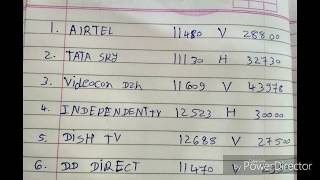 1. AIRTEL 11480 V 28800
2. TATA SKY 11130 H 32730
3. Videocon D2h 11609 V 43978
4. INDEPENDENTTV 12523 H 30000
5. DISH TV 12688 V 27500
6. DD DIRECT 11470
by PowerDirector